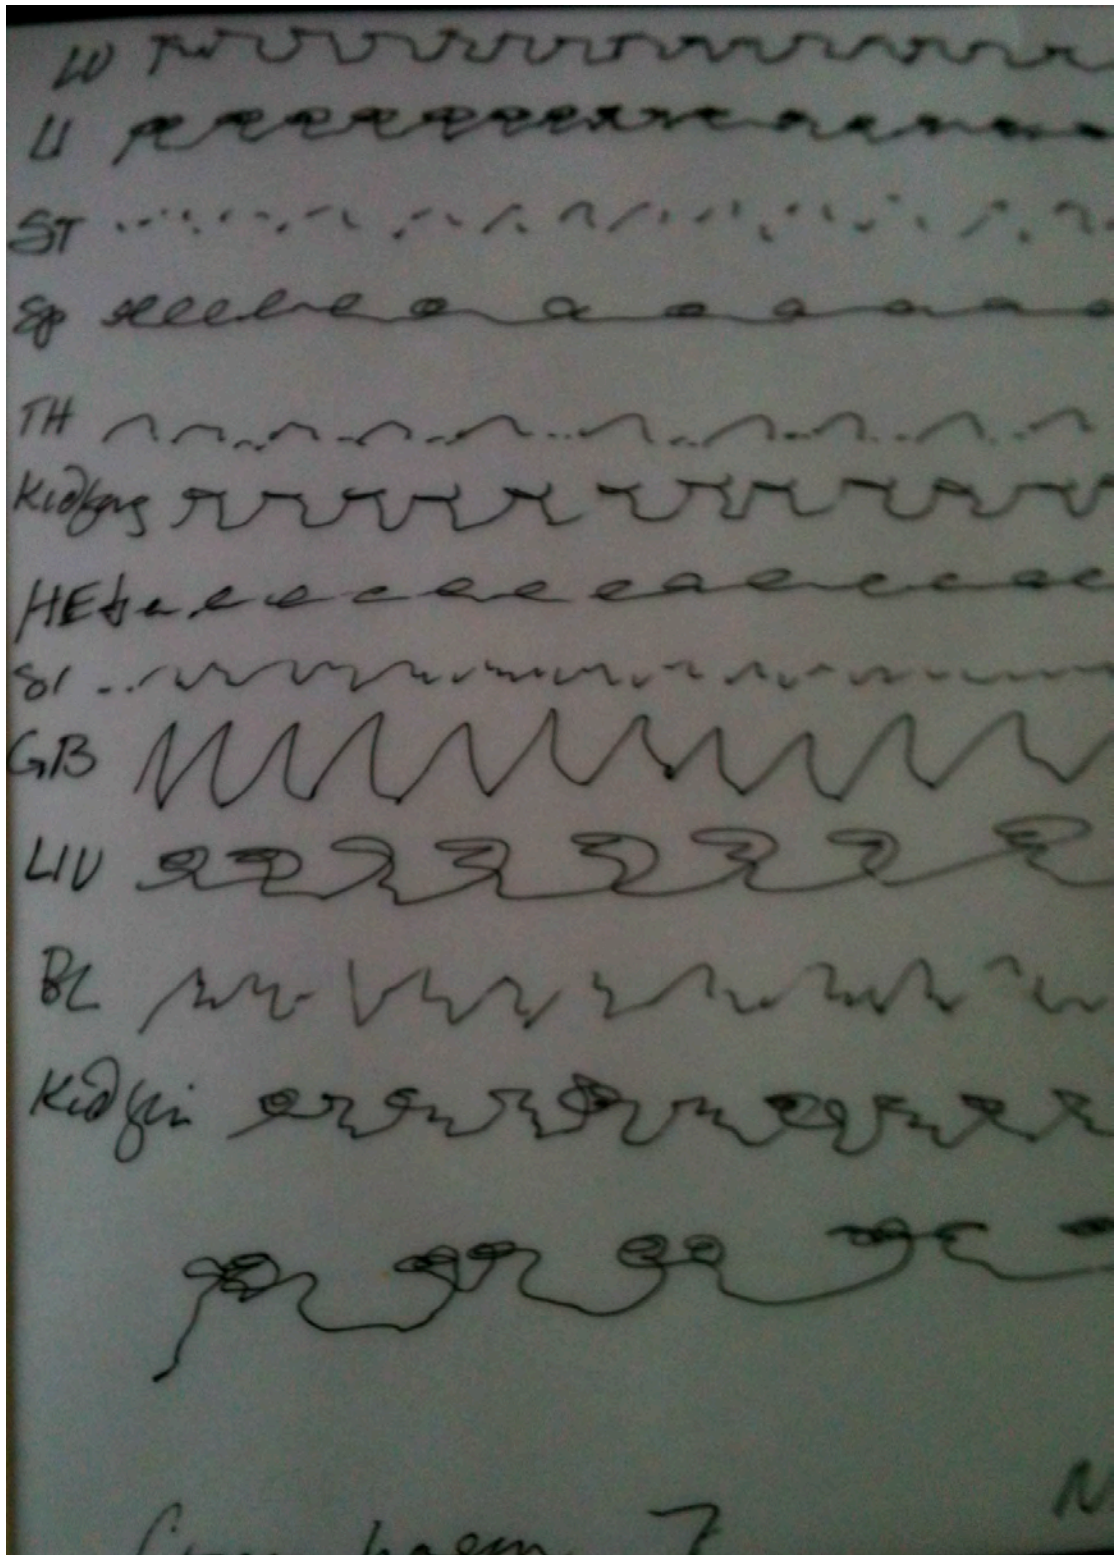 LU
LI
ST
Sp
TH
Kidyang
HE
SI
GB
LIV
BL
Kidyin
7
N